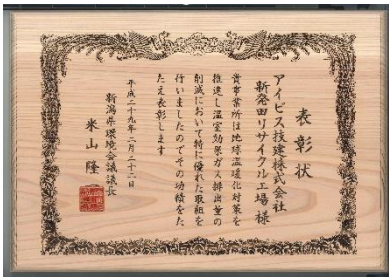 表彰状
アイビス技建株式会社
新発田リサイクル工場 様
貴事業所は地球温暖化対策を
推進し温室効果ガス排出量の
削減において特に優れた取組を
行いましたのでその功績をた
たえ表彰します
平成二十九年二月二十二日
新潟県環境会議議長
米山 隆一